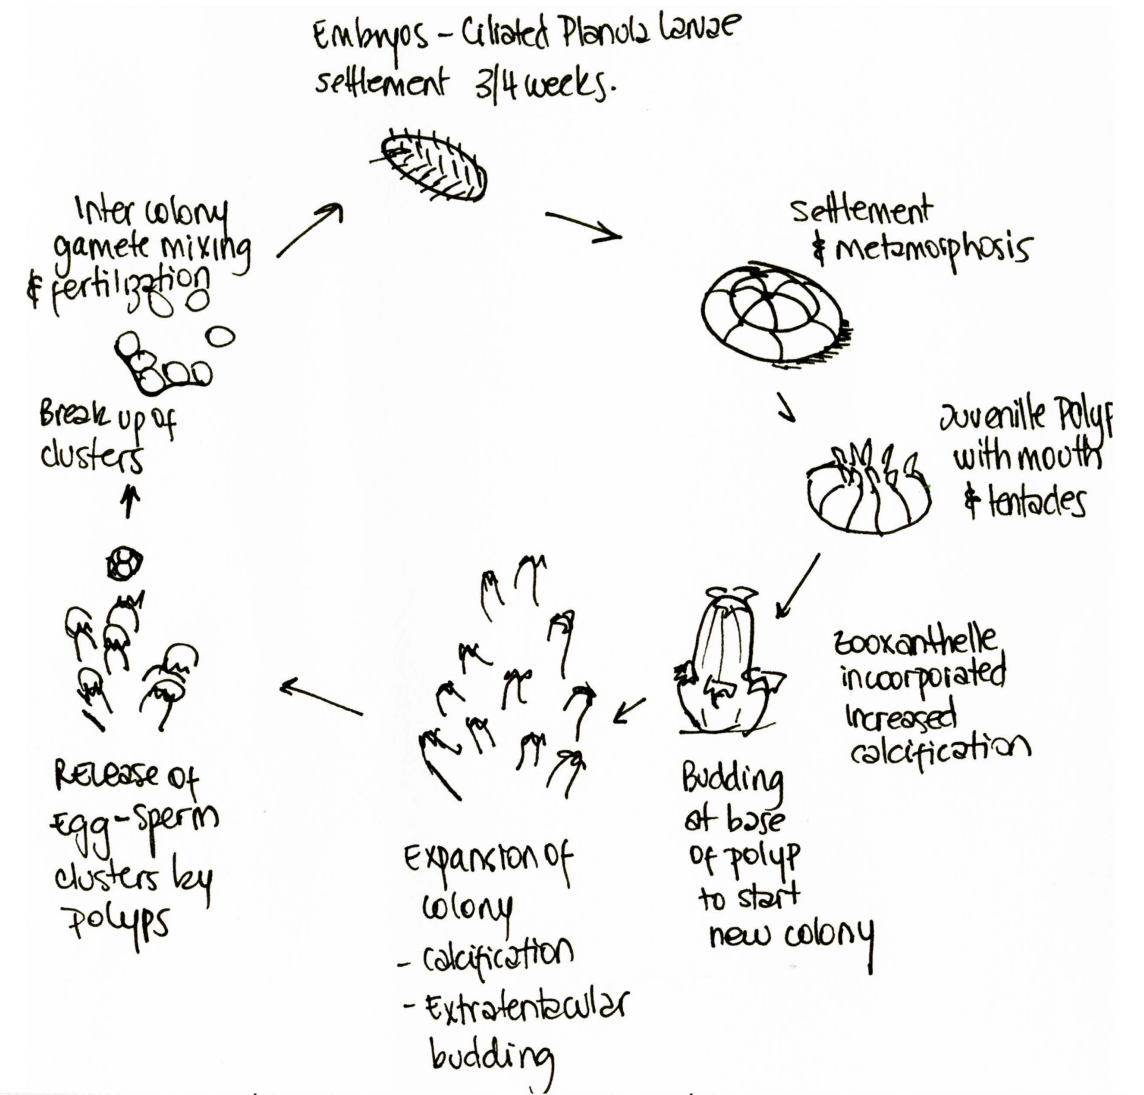 Embryos - Ciliated Planula Larvae
settlement 3/4 weeks.
Settlement
& metamorphosis
Juvenille Polyp
with mouth
& tentacles
Zooxanthelle
incorporated
Increased
calcification
Budding
at base
of polyp
to start
new colony
Expansion of
colony
- calcification
- Extratentacular
budding
Release of
Egg-Sperm
clusters by
polyps
Break up of
clusters
Inter colony
gamete mixing
& fertilization